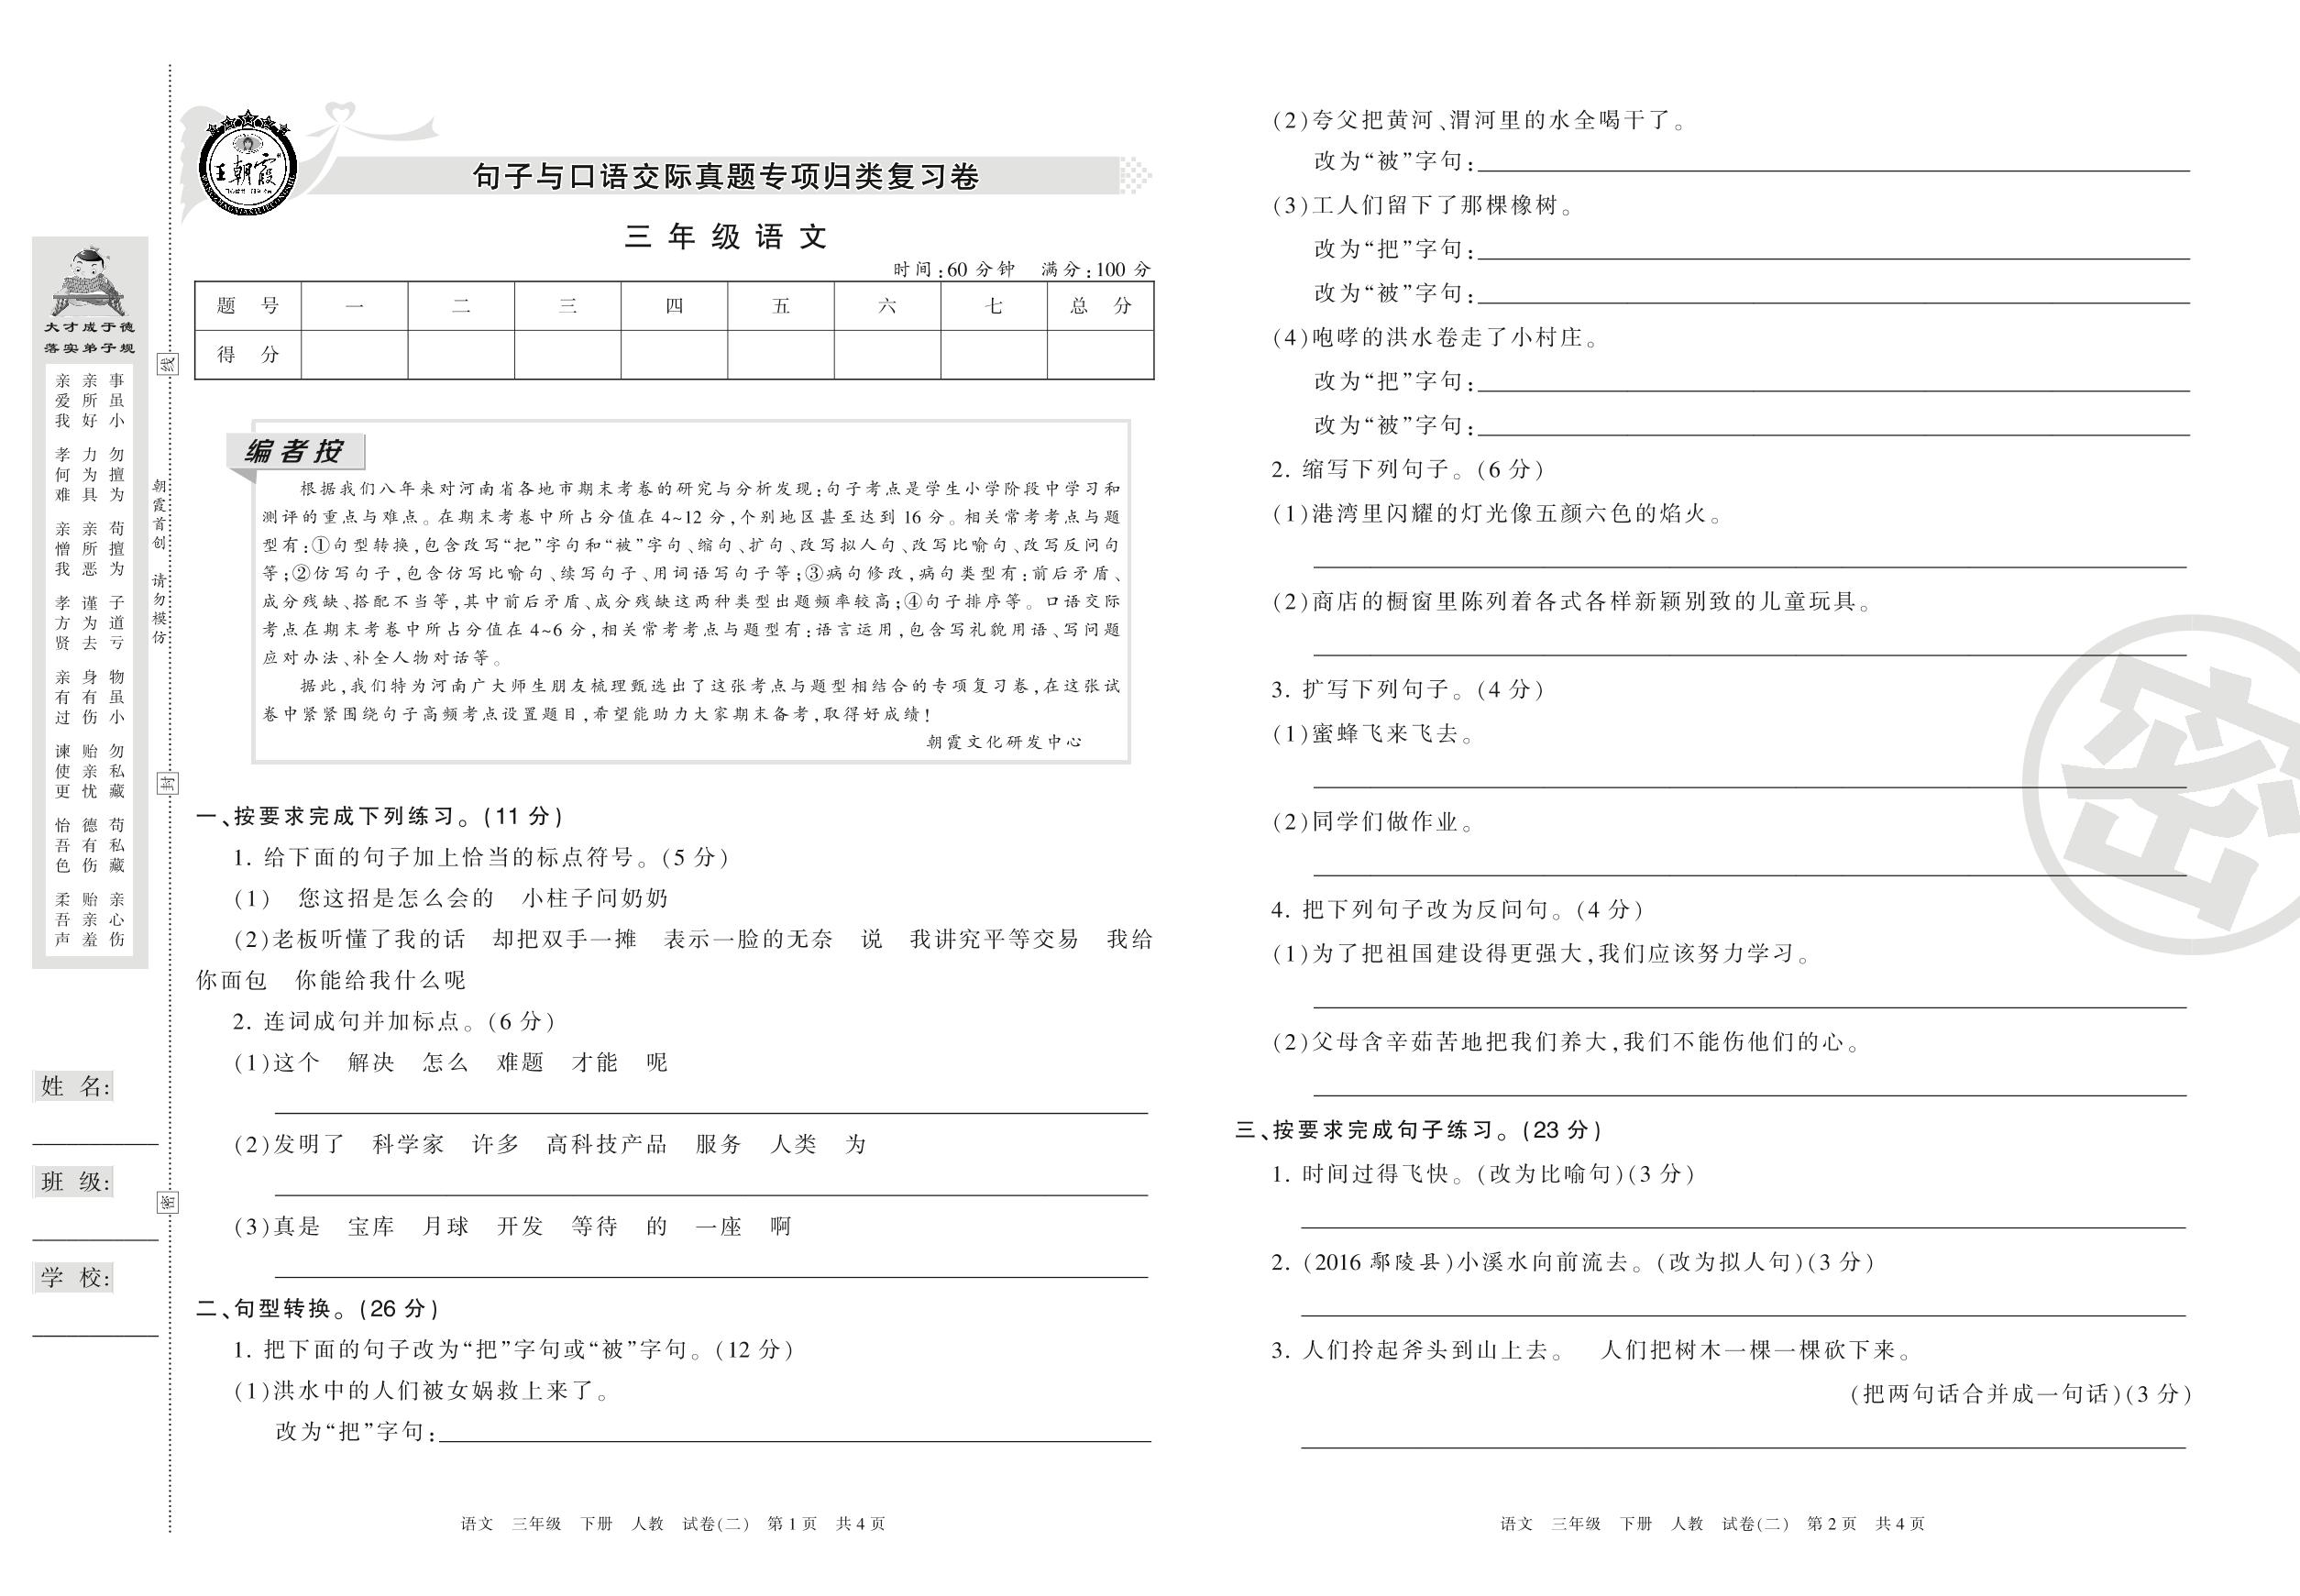 王朝霞
句子与口语交际真题专项归类复习卷
三年级语文
时间:60 分钟　满分:100 分
题　号　一　二　三　四　五　六　七　总　分
得　分
编者按
根据我们八年来对河南省各地市期末考卷的研究与分析发现:句子考点是学生小学阶段中学习和
测评的重点与难点。在期末考卷中所占分值在 4~12 分,个别地区甚至达到 16 分。相关常考考点与题
型有:①句型转换,包含改写“把”字句和“被”字句、缩句、扩句、改写拟人句、改写比喻句、改写反问句
等;②仿写句子,包含仿写比喻句、续写句子、用词语写句子等;③病句修改,病句类型有:前后矛盾、
成分残缺、搭配不当等,其中前后矛盾、成分残缺这两种类型出题频率较高;④句子排序等。口语交际
考点在期末考卷中所占分值在 4~6 分,相关常考考点与题型有:语言运用,包含写礼貌用语、写问题
应对办法、补全人物对话等。
据此,我们特为河南广大师生朋友梳理甄选出了这张考点与题型相结合的专项复习卷,在这张试
卷中紧紧围绕句子高频考点设置题目,希望能助力大家期末备考,取得好成绩!
朝霞文化研发中心
一、按要求完成下列练习。(11 分)
1. 给下面的句子加上恰当的标点符号。(5 分)
(1)　您这招是怎么会的　小柱子问奶奶
(2)老板听懂了我的话　却把双手一摊　表示一脸的无奈　说　我讲究平等交易　我给
你面包　你能给我什么呢
2. 连词成句并加标点。(6 分)
(1)这个　解决　怎么　难题　才能　呢
(2)发明了　科学家　许多　高科技产品　服务　人类　为
(3)真是　宝库　月球　开发　等待　的　一座　啊
二、句型转换。(26 分)
1. 把下面的句子改为“把”字句或“被”字句。(12 分)
(1)洪水中的人们被女娲救上来了。
改为“把”字句:
语文　三年级　下册　人教　试卷(二)　第 1 页　共 4 页
(2)夸父把黄河、渭河里的水全喝干了。
改为“被”字句:
(3)工人们留下了那棵橡树。
改为“把”字句:
改为“被”字句:
(4)咆哮的洪水卷走了小村庄。
改为“把”字句:
改为“被”字句:
2. 缩写下列句子。(6 分)
(1)港湾里闪耀的灯光像五颜六色的焰火。
(2)商店的橱窗里陈列着各式各样新颖别致的儿童玩具。
3. 扩写下列句子。(4 分)
(1)蜜蜂飞来飞去。
(2)同学们做作业。
4. 把下列句子改为反问句。(4 分)
(1)为了把祖国建设得更强大,我们应该努力学习。
(2)父母含辛茹苦地把我们养大,我们不能伤他们的心。
三、按要求完成句子练习。(23 分)
1. 时间过得飞快。(改为比喻句)(3 分)
2. (2016 鄢陵县)小溪水向前流去。(改为拟人句)(3 分)
3. 人们拎起斧头到山上去。　人们把树木一棵一棵砍下来。
(把两句话合并成一句话)(3 分)
语文　三年级　下册　人教　试卷(二)　第 2 页　共 4 页
密
大才成于德
落实弟子规
事虽小　勿擅为　苟擅为　子道亏　物虽小　勿私藏　苟私藏　亲心伤
亲所好　力为具　亲所恶　谨为去　身有伤　贻亲忧　德有伤　贻亲羞
亲爱我　孝何难　亲憎我　孝方贤　亲有过　谏使更　怡吾色　柔吾声
朝霞首创　请勿模仿
线
封
密
姓 名:
班 级:
学 校: